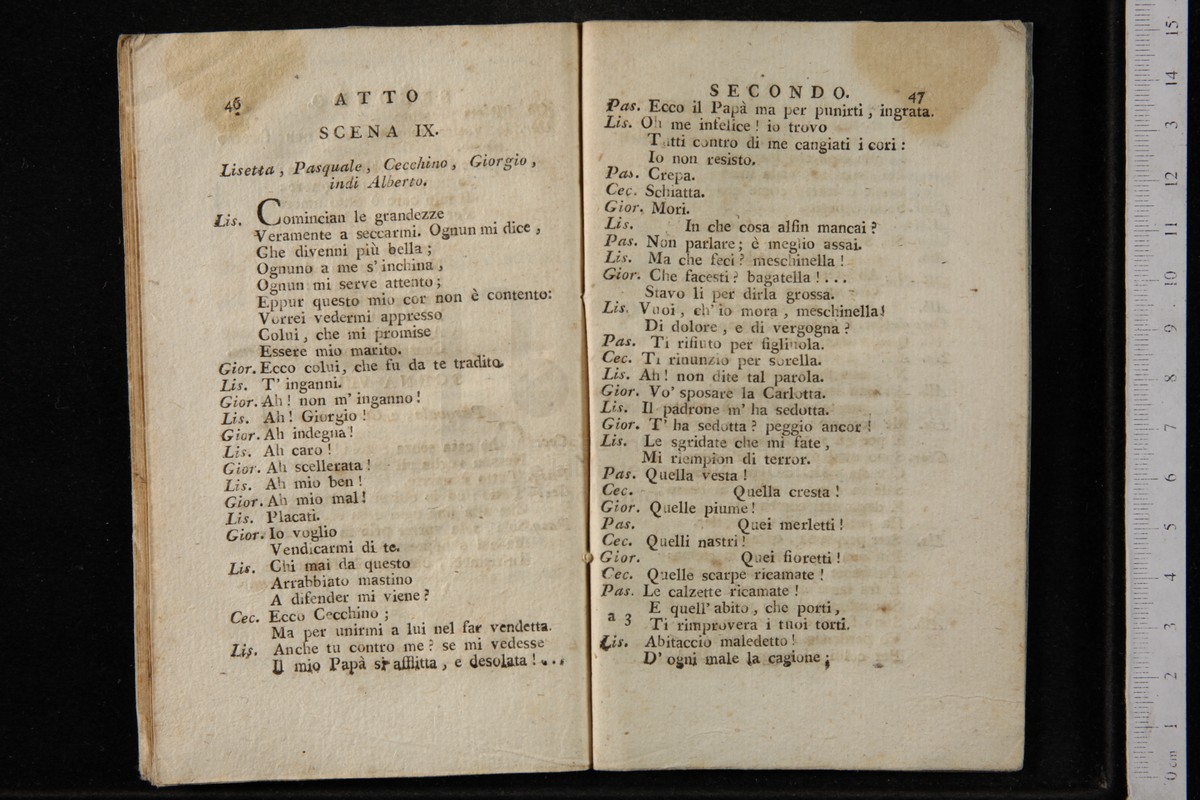 46
ATTO
SCENA IX.
Lisetta, Pasquale, Cecchino, Giorgio,
indi Alberto.
Lis. Comincian le grandezze
Veramente a seccarmi. Ognun mi dice,
Che divenni più bella;
Ognuno a me s'inchina,
Ognun mi serve attento;
Eppur questo mio cor non è contento:
Vorrei vedermi appresso
Colui, che mi promise
Essere mio marito.
Gior. Ecco colui, che fu da te tradito.
Lis. T'inganni.
Gior. Ah! non m'inganno!
Lis. Ah! Giorgio!
Gior. Ah indegna!
Lis. Ah caro!
Gior. Ah scellerata!
Lis. Ah mio ben!
Gior. Ah mio mal!
Lis. Placati.
Gior. Io voglio
Vendicarmi di te.
Lis. Chi mai da questo
Arrabbiato mastino
A difender mi viene?
Cec. Ecco Cecchino;
Ma per unirmi a lui nel far vendetta.
Lis. Anche tu contro me? se mi vedesse
Il mio Papà sì afflitta, e desolata!...
SECONDO.
47
Pas. Ecco il Papà ma per punirti, ingrata.
Lis. Oh me infelice! io trovo
Tutti contro di me cangiati i cori:
Io non resisto.
Pas. Crepa.
Cec. Schiatta.
Gior. Mori.
Lis. In che cosa alfin mancai?
Pas. Non parlare; è meglio assai.
Lis. Ma che feci? meschinella!
Gior. Che facesti? bagatella!...
Stavo li per dirla grossa.
Lis. Vuoi, ch'io mora, meschinella!
Di dolore, e di vergogna?
Pas. Ti rifiuto per figliuola.
Cec. Ti rinunzio per sorella.
Lis. Ah! non dite tal parola.
Gior. Vo' sposare la Carlotta.
Lis. Il padrone m'ha sedotta.
Gior. T'ha sedotta? peggio ancor!
Lis. Le sgridate che mi fate,
Mi riempion di terror.
Pas. Quella vesta!
Cec. Quella cresta!
Gior. Quelle piume!
Pas. Quei merletti!
Cec. Quelli nastri!
Gior. Quei fioretti!
Cec. Quelle scarpe ricamate!
Pas. Le calzette ricamate!
a 3 E quell'abito, che porti,
Ti rimprovera i tuoi torti.
Lis. Abitaccio maledetto!
D'ogni male la cagione;
0 cm 1 2 3 4 5 6 7 8 9 10 11 12 13 14 15